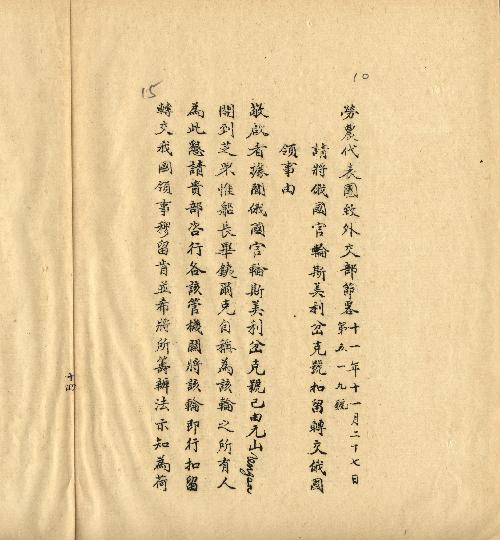 10
勞農代表團致外交部節畧 十一年十一月二十七日
第五一九號
請將俄國官輪斯美利岔克號扣留轉交俄國
領事由
敬啟者據聞俄國官輪斯美利岔克號已由元山Yongan
開到芝罘惟船長畢鐵爾克自稱為該輪之所有人
為此懇請貴部咨行各該管機關將該輪即行扣留
轉交我國領事穆留肯並希將所籌辦法示知為荷
15